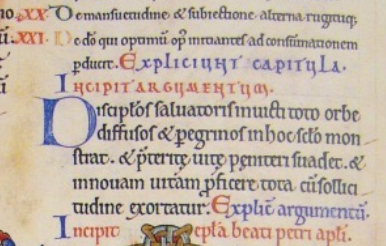 .XX. De mansuetudine & subiectione alterna
.XXI. De dō qui optimū opꝰ imitantes ad consūmationem
pducere. Expliciunt capitula.
Incipit argumentum.
Discipłos saluatoris inuicti toto orbe
diffusos & pegrinos in hoc scło mon
strat. & pterite uite penitere suadet. &
in nouam uitam pficere tota cū sollici
tudine exortatur. Explic argumentū.
Incipit epła beati petri apłi.